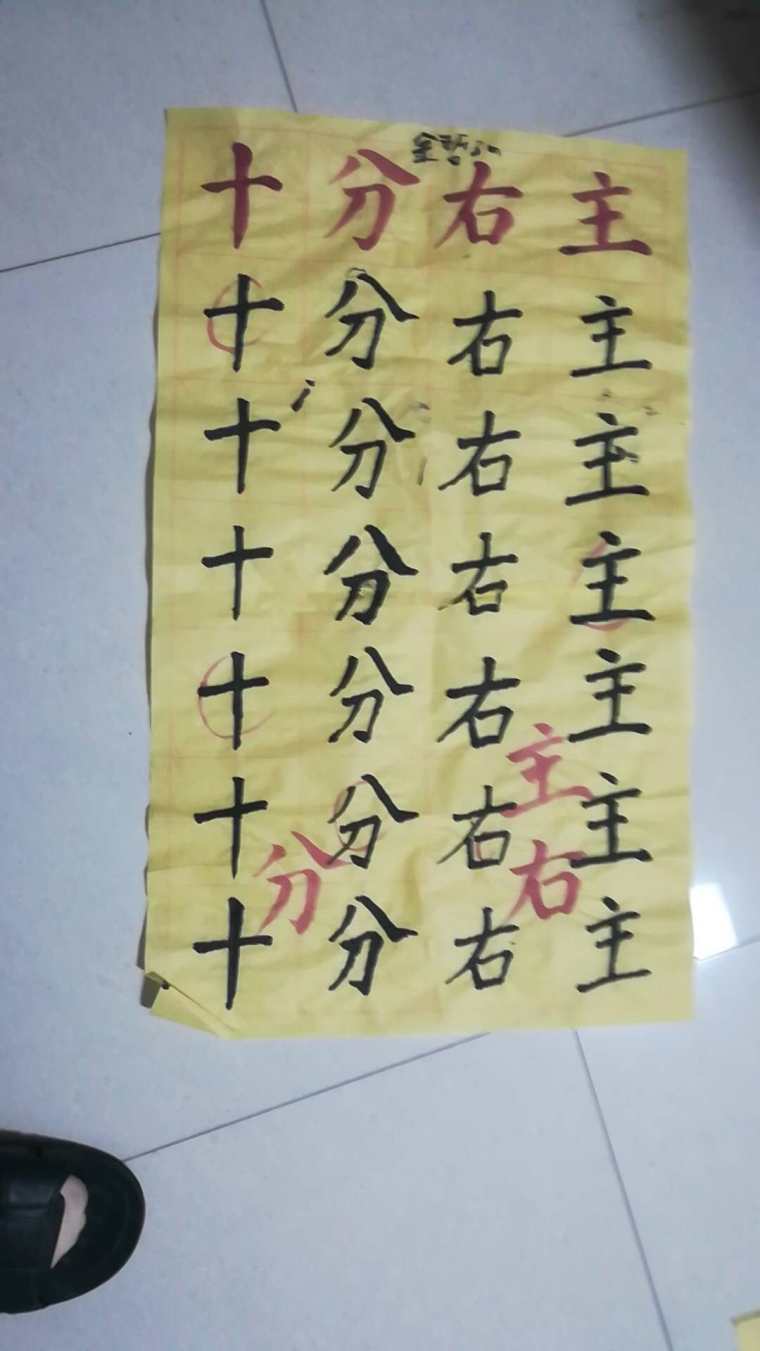 十分右主
十分右主
十分右主
十分右主
十分右主
主
十分右主
分右
十分右主